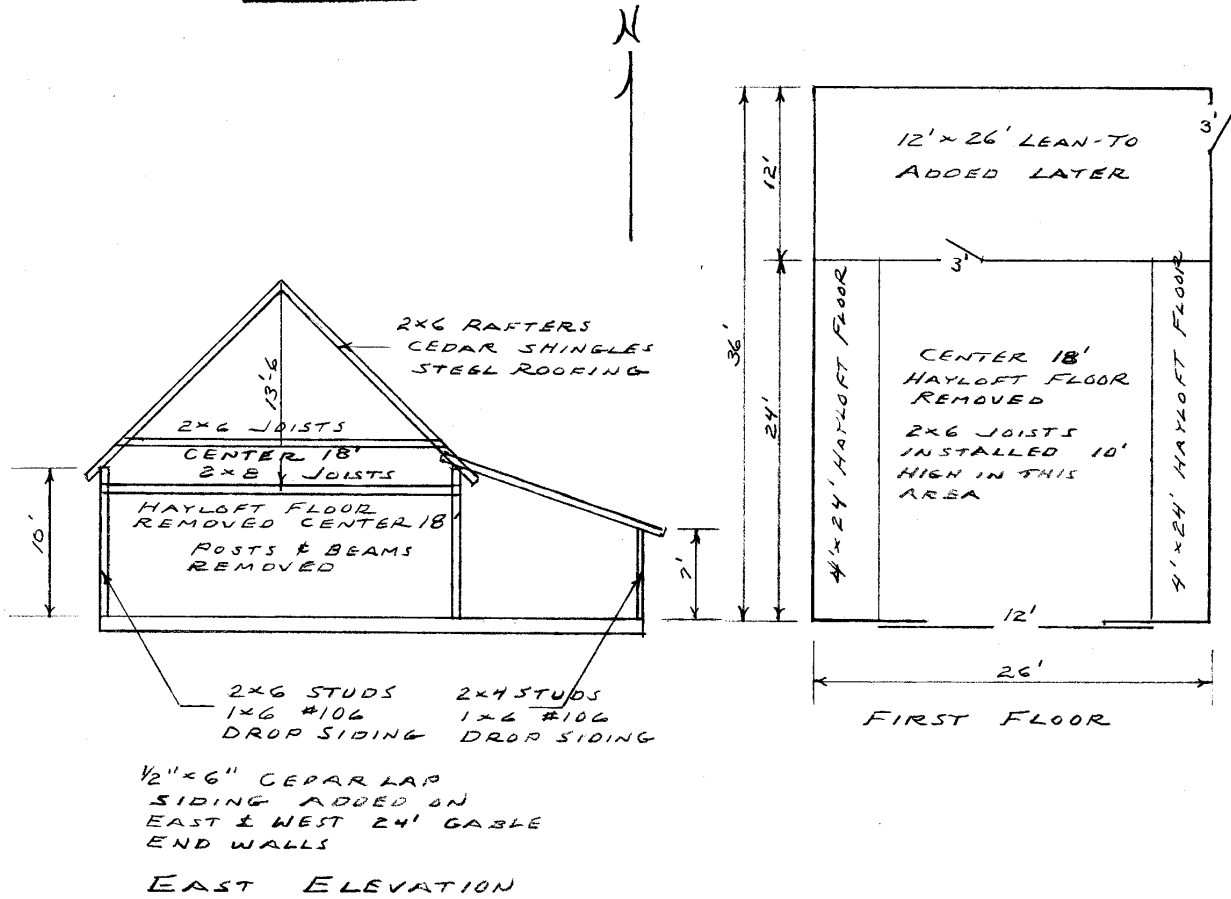 N
2x6 RAFTERS
CEDAR SHINGLES
STEEL ROOFING
13'-6
2x6 JOISTS
CENTER 18'
2x8 JOISTS
HAYLOFT FLOOR
REMOVED CENTER 18'
POSTS & BEAMS
REMOVED
10'
7'
2x6 STUDS
1x6 #106
DROP SIDING
2x4 STUDS
1x6 #106
DROP SIDING
1/2"x6" CEDAR LAP
SIDING ADDED ON
EAST & WEST 24' GABLE
END WALLS
EAST ELEVATION
12'x26' LEAN-TO
ADDED LATER
3'
12'
36'
24'
3'
4'x24' HAYLOFT FLOOR
CENTER 18'
HAYLOFT FLOOR
REMOVED
2x6 JOISTS
INSTALLED 10'
HIGH IN THIS
AREA
4'x24' HAYLOFT FLOOR
12'
26'
FIRST FLOOR